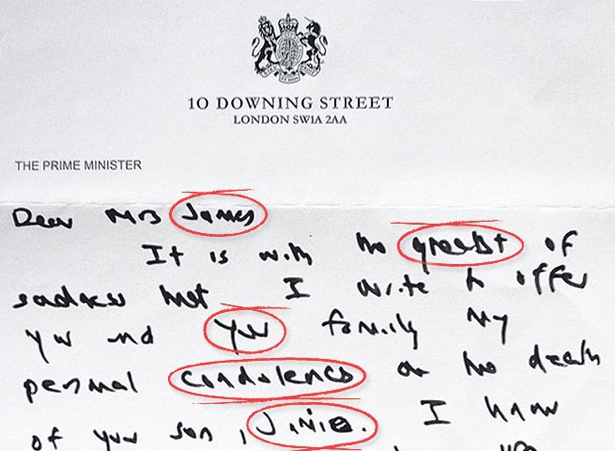 10 DOWNING STREET
LONDON SW1A 2AA
THE PRIME MINISTER
Dear Mrs James
It is with the greatst of
sadness that I write to offer
you and your family my
personal condolencs on the death
of your son, Jamie. I know